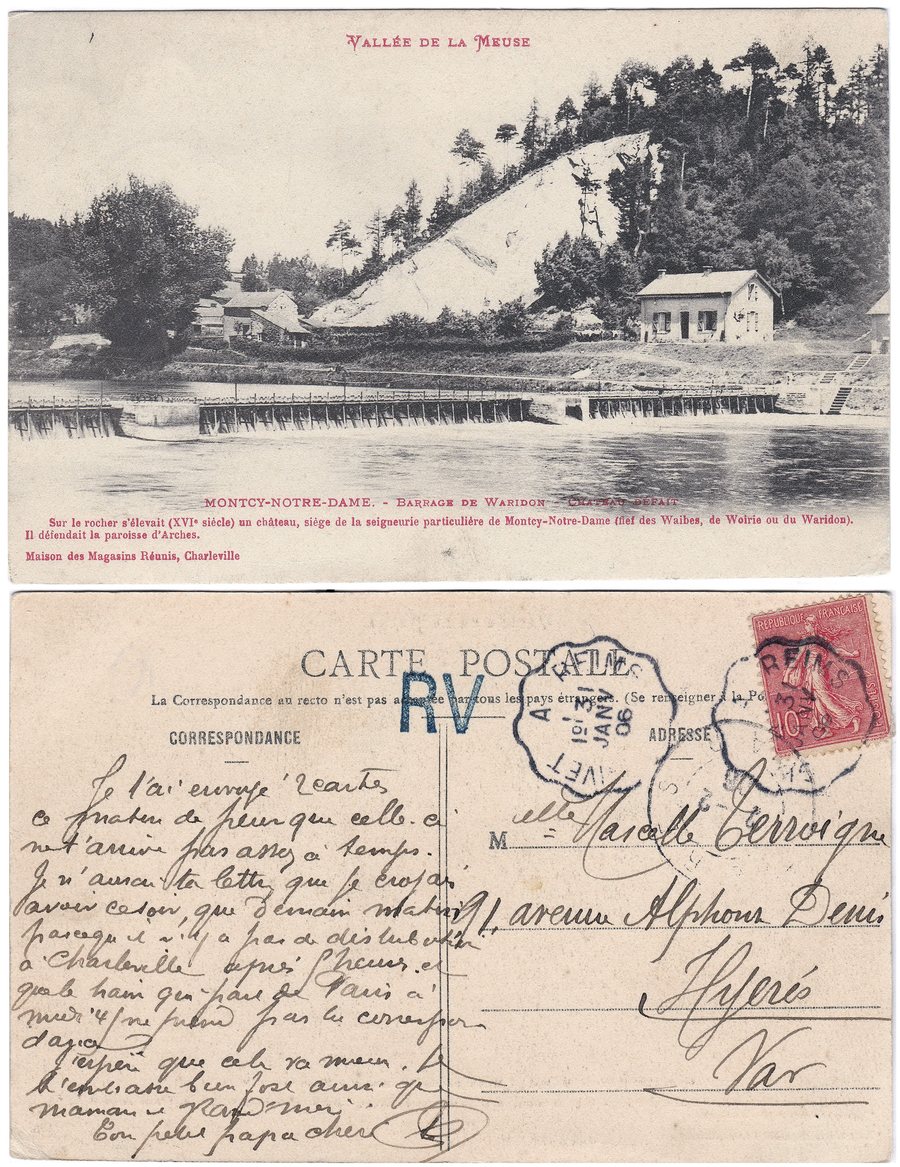 VALLÉE DE LA MEUSE
MONTCY-NOTRE-DAME. - BARRAGE DE WARIDON - CHATEAU DÉFAIT
Sur le rocher s'élevait (XVIe siècle) un château, siège de la seigneurie particulière de Montcy-Notre-Dame (fief des Waibes, de Woirie ou du Waridon).
Il défendait la paroisse d'Arches.
Maison des Magasins Réunis, Charleville
RÉPUBLIQUE FRANÇAISE
10
CARTE POSTALE
La Correspondance au recto n'est pas acceptée par tous les pays étrangers. (Se renseigner à la Po
RV
A REIMS
1° 31
JANV
06
REIMS
31
CORRESPONDANCE
ADRESSE
Je t'ai envoyé 2 cartes
ce matin de peur que celle-ci
ne t'arrive pas assez à temps.
Je n'aurai ta lettre que je croyais
avoir ce soir, que demain matin
parcequ'il n'y a pas de distribution
à Charleville après heures et
que le train qui part de Paris à
midi 1/4 ne prend pas la correspon
dance
J'espère que cela va mieux. Je
t'embrasse bien fort ainsi que
maman et grand'mère
Ton petit papa chéri
Melle Marcelle Terroigne
91, avenue Alphonse Denis
Hyerés
Var